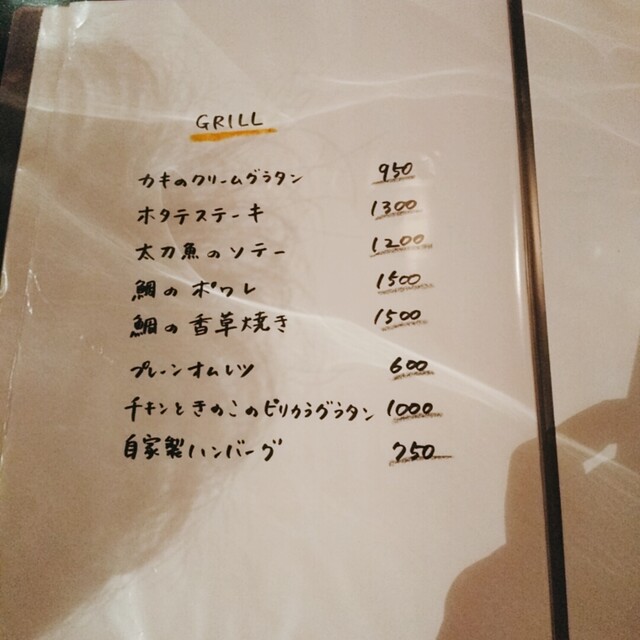 GRILL
カキのクリームグラタン 950
ホタテステーキ 1300
太刀魚のソテー 1200
鯛のポワレ 1500
鯛の香草焼き 1500
プレーンオムレツ 600
チキンときのこのピリカラグラタン 1000
自家製ハンバーグ 750